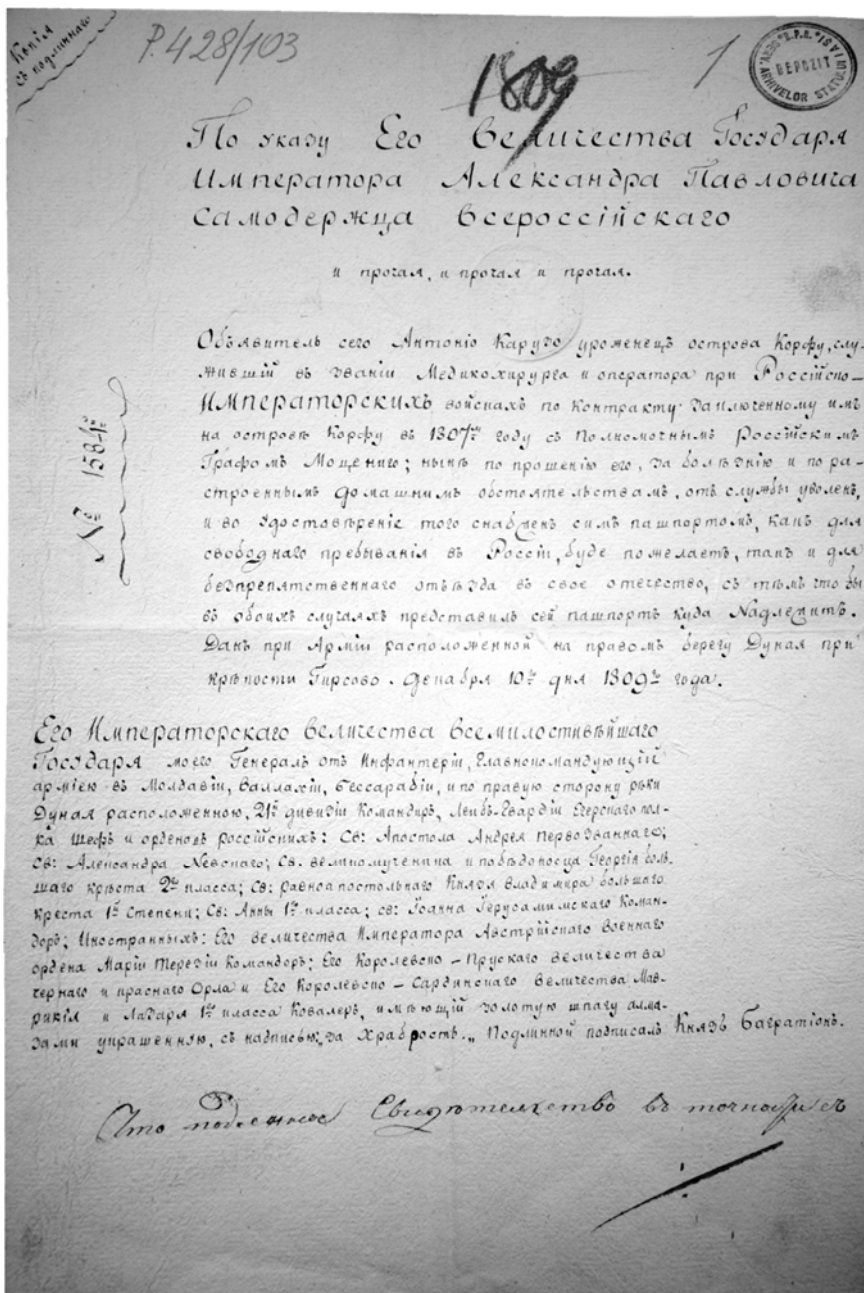 Копія
съ подлиннаго
P. 428/103
1809
1
DEPOZIT
ARHIVELOR STATULUI
По указу Его Величества Государя
Императора Александра Павловича
Самодержца Всероссійскаго
и прочая, и прочая и прочая.
№ 1584й
Объявитель сего Антоніо Карузо уроженецъ острова Корфу, слу-
жившій въ званіи Медикохирурга и оператора при Россійско-
Императорскихъ войскахъ по контракту заключенному имъ
на островѣ Корфу въ 1807мъ году съ Полномочнымъ Россійскимъ
Графомъ Моцениго; нынѣ по прошенію его, за болѣзнію и по ра-
строеннымъ домашнимъ обстоятельствамъ, отъ службы уволенъ,
и во удостовѣреніе того снабженъ симъ пашпортомъ, какъ для
свободнаго пребыванія въ Россіи, буде пожелаетъ, такъ и для
безпрепятственнаго отъѣзда въ свое отечество, съ тѣмъ что бы
въ обоихъ случаяхъ представилъ сей пашпортъ куда надлежитъ.
Данъ при Арміи расположенной на правомъ берегу Дуная при
крѣпости Гирсово. Декабря 10го дня 1809го года.
Его Императорскаго Величества Всемилостивѣйшаго
Государя моего Генералъ отъ Инфантеріи, Главнокомандующій
арміею въ Молдавіи, Валлахіи, Бессарабіи, и по правую сторону рѣки
Дуная расположенною, 21й дивизіи Командиръ, Лейбъ-Гвардіи Егерскаго пол-
ка Шефъ и орденовъ россійскихъ: Св: Апостола Андрея Первозваннаго;
Св: Александра Невскаго; Св. великомученика и побѣдоносца Георгія боль-
шаго креста 2го класса; Св: равноапостольнаго Князя Владимира большаго
креста 1й Степени; Св: Анны 1го класса; св: Іоанна Іерусалимскаго Коман-
доръ; Иностранныхъ: Его Величества Императора Австрійскаго военнаго
ордена Маріи Терезіи Командоръ; Его Королевско-Прускаго величества
чернаго и краснаго Орла и Его Королевско-Сардинскаго Величества Мав-
рикія и Лазаря 1го класса Ковалеръ, имѣющій золотую шпагу алма-
зами украшенную, съ надписью: „за Храбрость.„ Подлинной подписалъ Князь Багратіонъ.
Что подленное Свидѣтелство въ точности съ